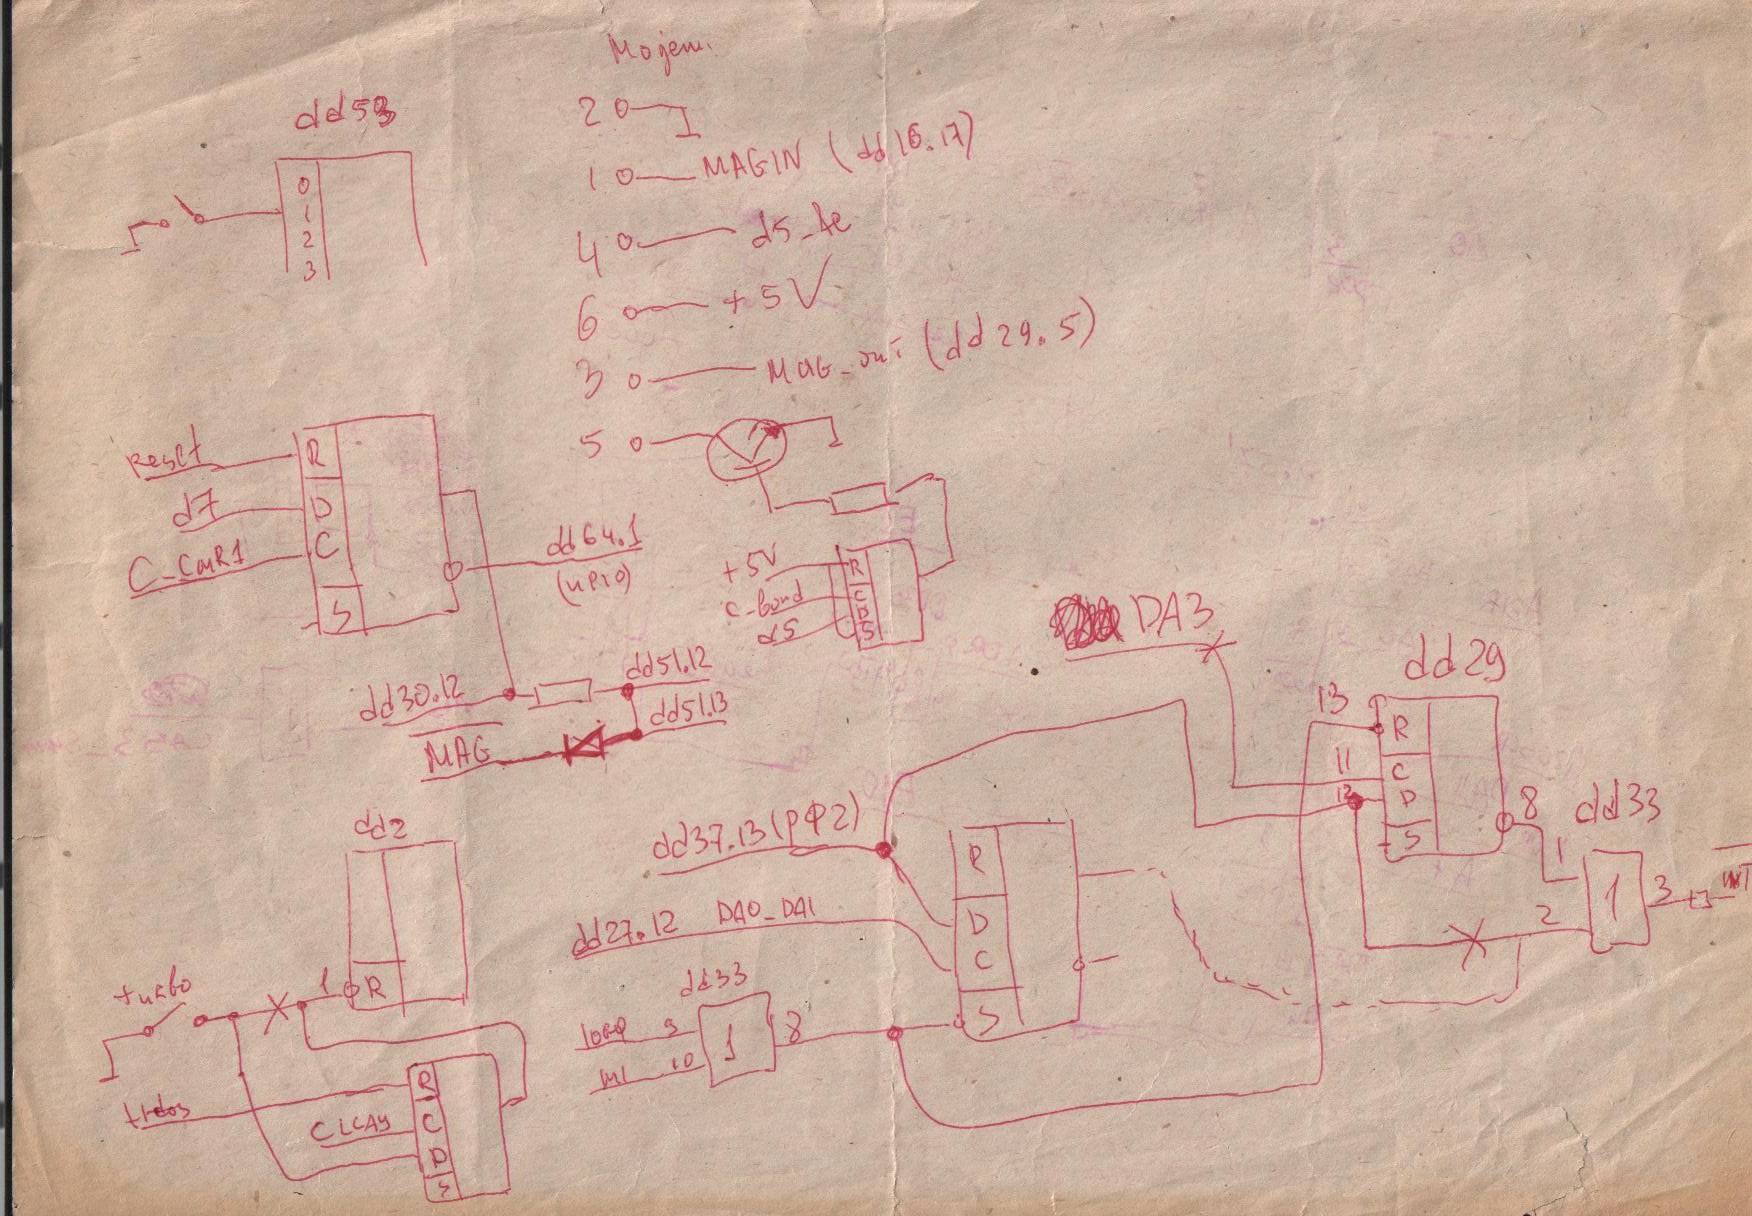 dd53
0
1
2
3
2
1 MAGIN (dd16.17)
4
6 +5V
3 MAG_out (dd29.5)
5
Reset
R
d7
D
C
S
dd64.1
+5V
R
C
D
d5
S
dd30.12
dd51.12
dd51.13
MAG
DA3
dd29
13
R
11
C
12
D
S
8
dd33
1
1
2
3
INT
dd37.13 (РФ2)
R
D
C
S
dd27.12 DA0_DA1
dd33
9
10
M1
1
8
dd2
R
turbo
1
trdos
R
C
D
S